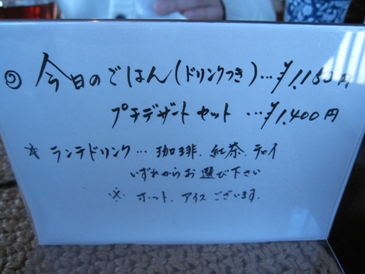 ◎ 今日のごはん(ドリンクつき)…¥1,150円
プチデザートセット …¥1,400円
☆ ランチドリンク… 珈琲、紅茶、チャイ
いずれからお選び下さい
※ ホット、アイスございます。